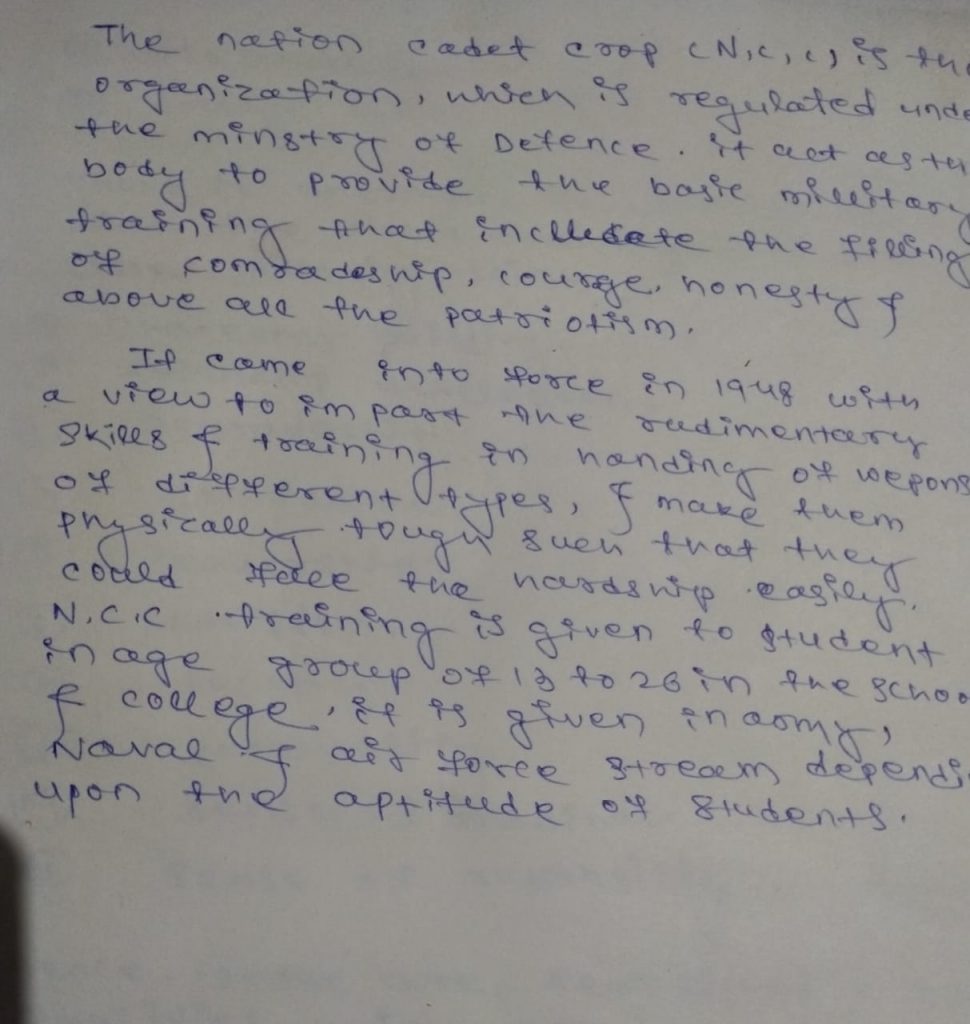 The nation cadet crop (N.C.C) is the
organization, which is regulated unde
the minstry of Defence. it act as th
body to provide the basic millitary
training that incllecate the filling
of comradeship, courge, honesty &
above all the patriotism.
It came into force in 1948 with
a view to impart the rudimentary
skills & training in handing of wepons
of different types, & make them
physically tough such that they
could face the hardship easily.
N.C.C training is given to student
in age group of 13 to 26 in the schoo
& college, it is given in army,
Naval & air force stream dependi
upon the aptitude of students.